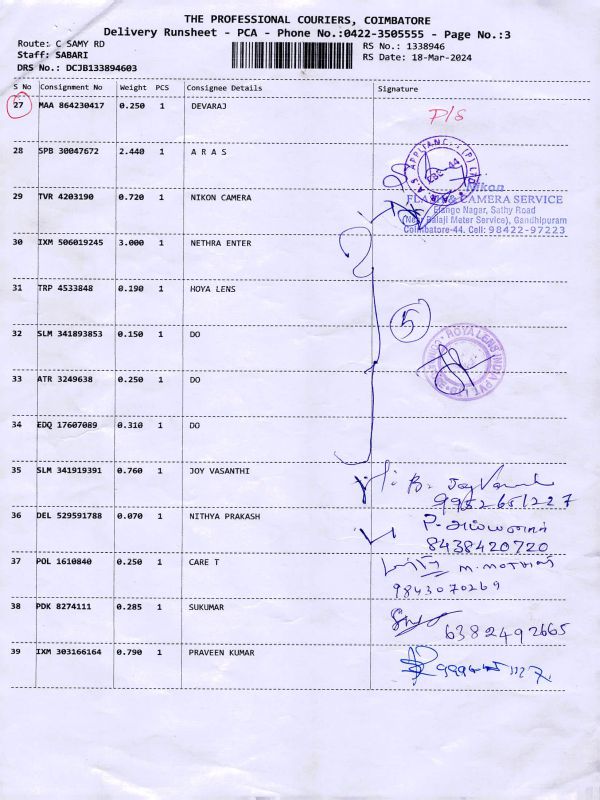 THE PROFESSIONAL COURIERS, COIMBATORE
Delivery Runsheet - PCA - Phone No.:0422-3505555 - Page No.:3
Route: C SAMY RD
RS No.: 1338946
Staff: SABARI
RS Date: 18-Mar-2024
DRS No.: DCJB133894603
S No Consignment No Weight PCS Consignee Details Signature
27 MAA 864230417 0.250 1 DEVARAJ P/S
28 SPB 30047672 2.440 1 A R A S
29 TVR 4203190 0.720 1 NIKON CAMERA
Nikon
CAMERA SERVICE
Elango Nagar, Sathy Road
(Near Balaji Meter Service), Gandhipuram
Coimbatore-44. Cell: 98422-97223
30 IXM 506019245 3.000 1 NETHRA ENTER
31 TRP 4533848 0.190 1 HOYA LENS
5
32 SLM 341893853 0.150 1 DO
HOYA LENS INDIA PVT LTD
33 ATR 3249638 0.250 1 DO
34 EDQ 17607089 0.310 1 DO
35 SLM 341919391 0.760 1 JOY VASANTHI
9952651227
36 DEL 529591788 0.070 1 NITHYA PRAKASH
8438420720
37 POL 1610840 0.250 1 CARE T
9843070269
38 PDK 8274111 0.285 1 SUKUMAR
6382492665
39 IXM 303166164 0.790 1 PRAVEEN KUMAR